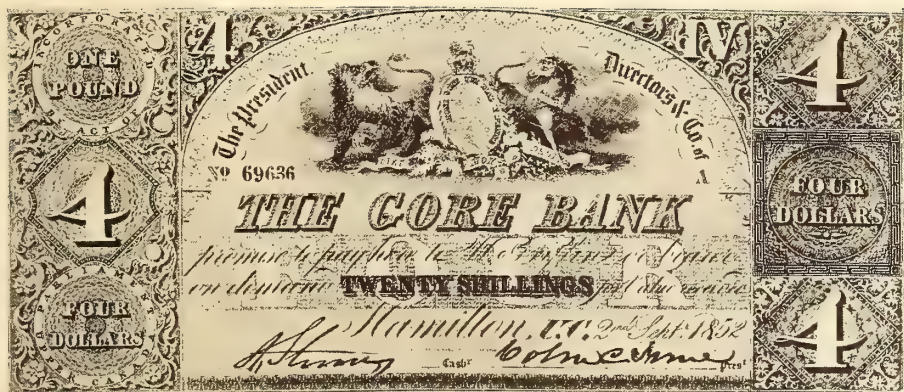 ONE
POUND
ACT
4
FOUR
DOLLARS
4
IV
The President
Directors & Co. of
No 69636
A
THE GORE BANK
promise to pay here to or bearer
on demand TWENTY SHILLINGS for value received
Hamilton, U.C. 2nd Sept. 1852
Cashr
Colin C. Ferrie Prest
4
FOUR
DOLLARS
4